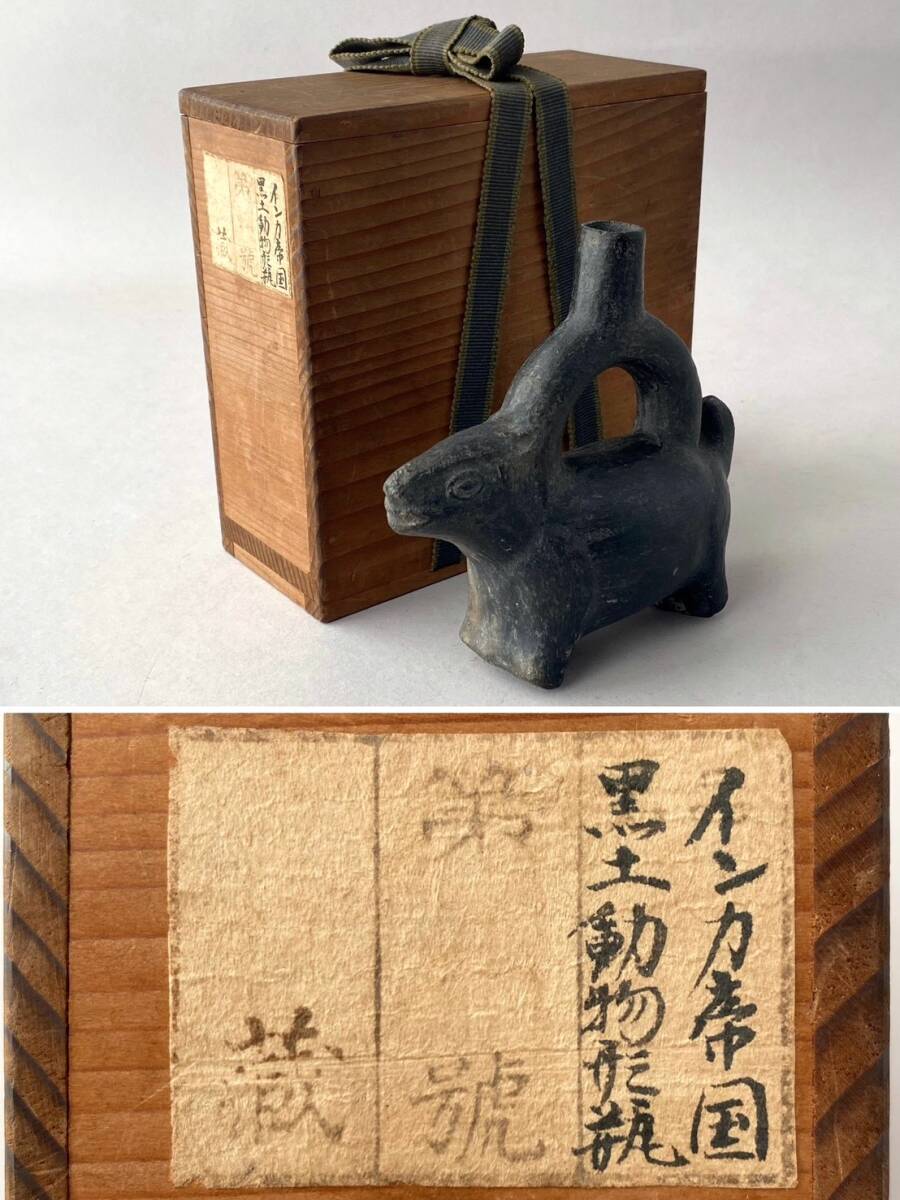 インカ帝国
黒土動物形瓶
第 號
蔵
インカ帝国
黒土動物形瓶
第 號
蔵